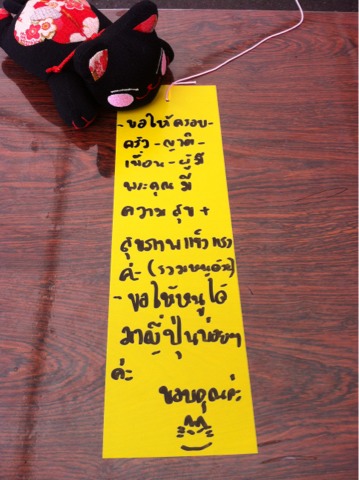 - ขอให้ครอบ-
ครัว - ญาติ -
เพื่อน - ผู้มี
พระคุณ มี
ความ สุข +
สุขภาพแข็งแรง
ค่ะ - (รวมหนูด้วย)
- ขอให้หนูได้
มาญี่ปุ่นบ่อยๆ
ค่ะ
ขอบคุณค่ะ